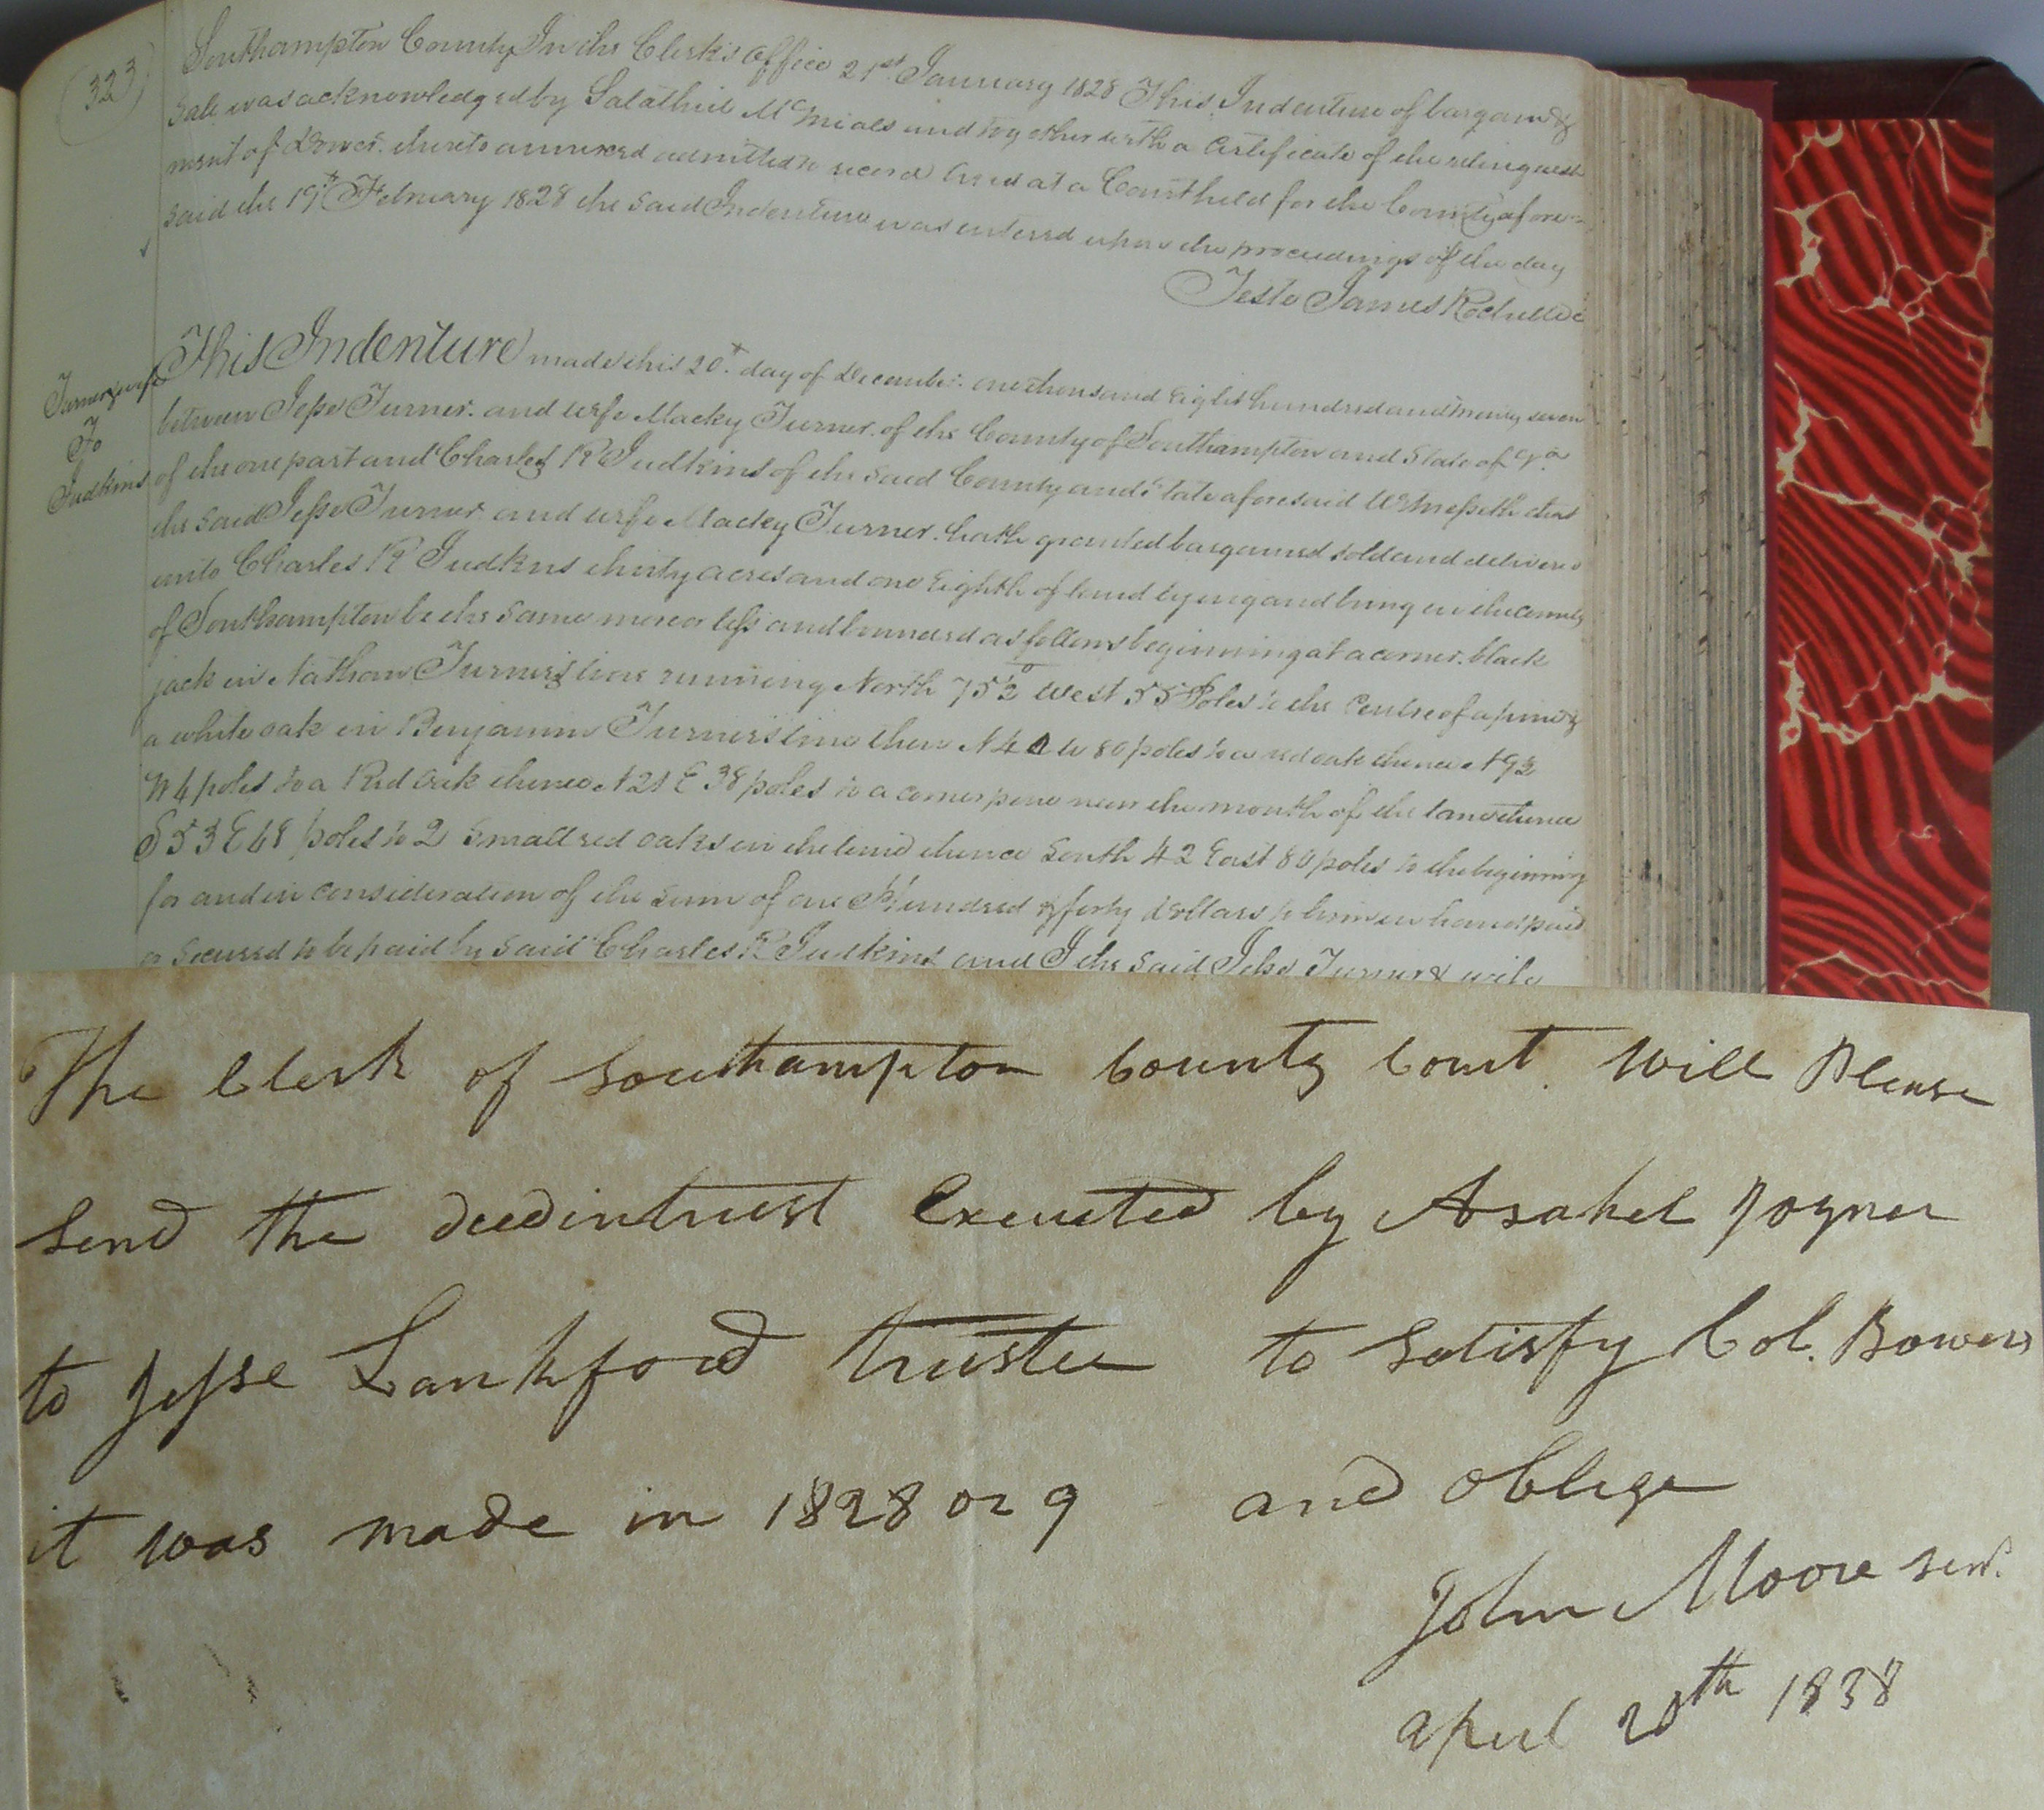 323
Southampton County In the Clerk's Office 21st January 1828 This Indenture of bargain &
Sale was acknowledged by Salathiel McMials and together with a Certificate of the relinquish
ment of Dower thereto annexed admitted to record And at a Court held for the County afore=
said the 19th February 1828 the said Indenture was entered upon the proceedings of the day
Teste James Rochelle
This Indenture made this 20th day of December one thousand Eight hundred and twenty seven
Turner & wife
To
Judkins
between Jesse Turner and wife Macky Turner of the County of Southampton and State of Va
of the one part and Charles R Judkins of the said County and State aforesaid Witnesseth that
the said Jesse Turner and wife Macky Turner hath granted bargained sold and delivered
unto Charles R Judkins thirty acres and one Eighth of land lying and being in the County
of Southampton be the same more or less and bounded as follows beginning at a corner black
jack in Nathan Turner's line running North 75½ West 55 Poles to the Centre of a pine &
a white oak in Benjamin Turner's line then N 4 W 80 poles to a red oak thence N 92
W 4 poles to a Red Oak thence N 21 E 38 poles to a corner pine near the mouth of the lane thence
S 53 E 68 poles to 2 Small red oaks in the thence South 42 East 80 poles to the beginning
for and in consideration of the sum of one Hundred & forty dollars to him in hand paid
or secured to be paid by said Charles R Judkins and I the said Jesse Turner & wife
The Clerk of Southampton County Court Will Please
Send the deedintrust Executed by Asahel Joyner
to Jesse Lankford trustee to Satisfy Col. Bowers
it was made in 1828 or 9 and oblige
John Moore senr.
april 20th 1838